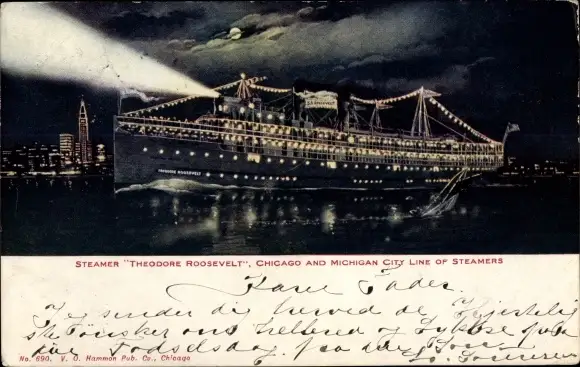 THEODORE ROOSEVELT
STEAMER "THEODORE ROOSEVELT", CHICAGO AND MICHIGAN CITY LINE OF STEAMERS
Kære Fader
Jeg sender dig herved de Hjertelig
ste Ønsker om Helbred og Lykke
Födselsdag. fra
No. 690. V. O. Hammon Pub. Co., Chicago